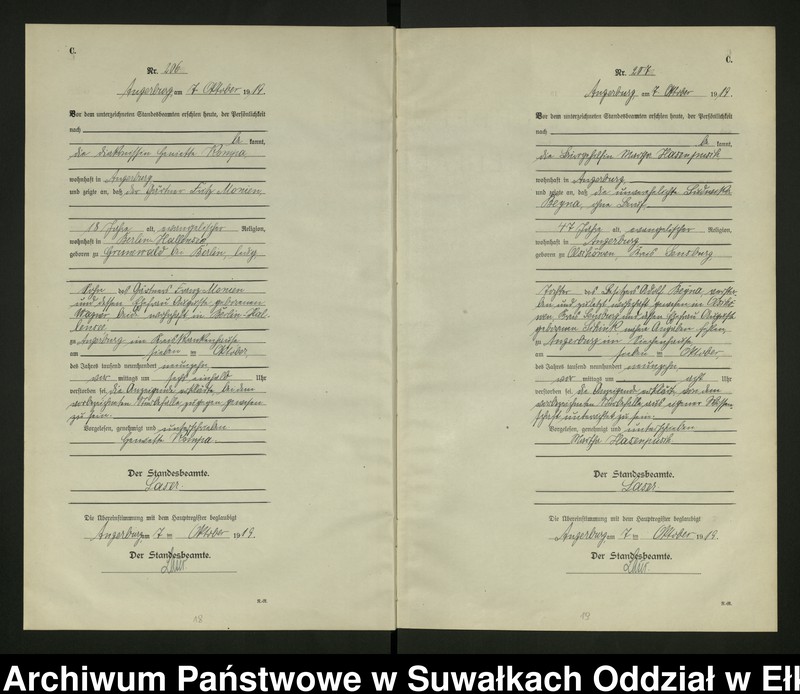 C.
Nr. 206.
Angerburg, am 7. Oktober 1919.
Vor dem unterzeichneten Standesbeamten erschien heute, der Persönlichkeit
nach
kannt,
die Diakonissin Henriette Kompa
wohnhaft in Angerburg
und zeigte an, daß der Gärtner Fritz Monien
18 Jahre alt, evangelischer Religion,
wohnhaft in Berlin Hallensee
geboren zu Grunewald bei Berlin, ledig
Sohn des Gärtners Franz Monien
und dessen Ehefrau Auguste geborenen
Wagner, beide wohnhaft in Berlin-Hal-
lensee
zu Angerburg im Kreiskrankenhause
am sieben ten Oktober
des Jahres tausend neunhundert neunzehn
vor mittags um Uhr
verstorben sei. Die Anzeigende erklärte, bei dem
vorbezeichneten Sterbefalle zugegen gewesen
zu sein.
Vorgelesen, genehmigt und unterschrieben
Henriette Kompa.
Der Standesbeamte.
Laser.
Die Übereinstimmung mit dem Hauptregister beglaubigt
Angerburg am 7 ten Oktober 1919.
Der Standesbeamte.
Laser.
18
C.
Nr. 207.
Angerburg am 7. Oktober 1919.
Vor dem unterzeichneten Standesbeamten erschien heute, der Persönlichkeit
nach
kannt,
die Martha Hasenpusch
wohnhaft in Angerburg
und zeigte an, daß die unverehelichte
Begna, ohne Beruf
47 Jahre alt, evangelischer Religion,
wohnhaft in Angerburg
geboren zu Olschöwen, Kreis Sensburg
Tochter des Adolf Begna,
und zuletzt wohnhaft gewesen in
Kreis Sensburg und dessen Ehefrau Auguste
geborenen
zu Angerburg im Siechenhause
am sieben ten Oktober
des Jahres tausend neunhundert neunzehn
vor mittags um acht Uhr
verstorben sei. Die Anzeigende erklärte von dem
vorbezeichneten Sterbefalle aus eigener Wissen-
schaft unterrichtet zu sein.
Vorgelesen, genehmigt und unterschrieben
Martha Hasenpusch
Der Standesbeamte.
Laser.
Die Übereinstimmung mit dem Hauptregister beglaubigt
Angerburg am 7 ten Oktober 1919.
Der Standesbeamte.
Laser.
19
Archiwum Państwowe w Suwałkach Oddział w Eł